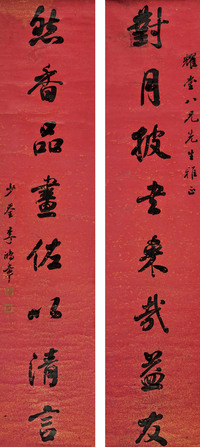 耀堂八兄先生雅正
對月披書來哉益友
然香品畫佐以清言
少荃李鴻章